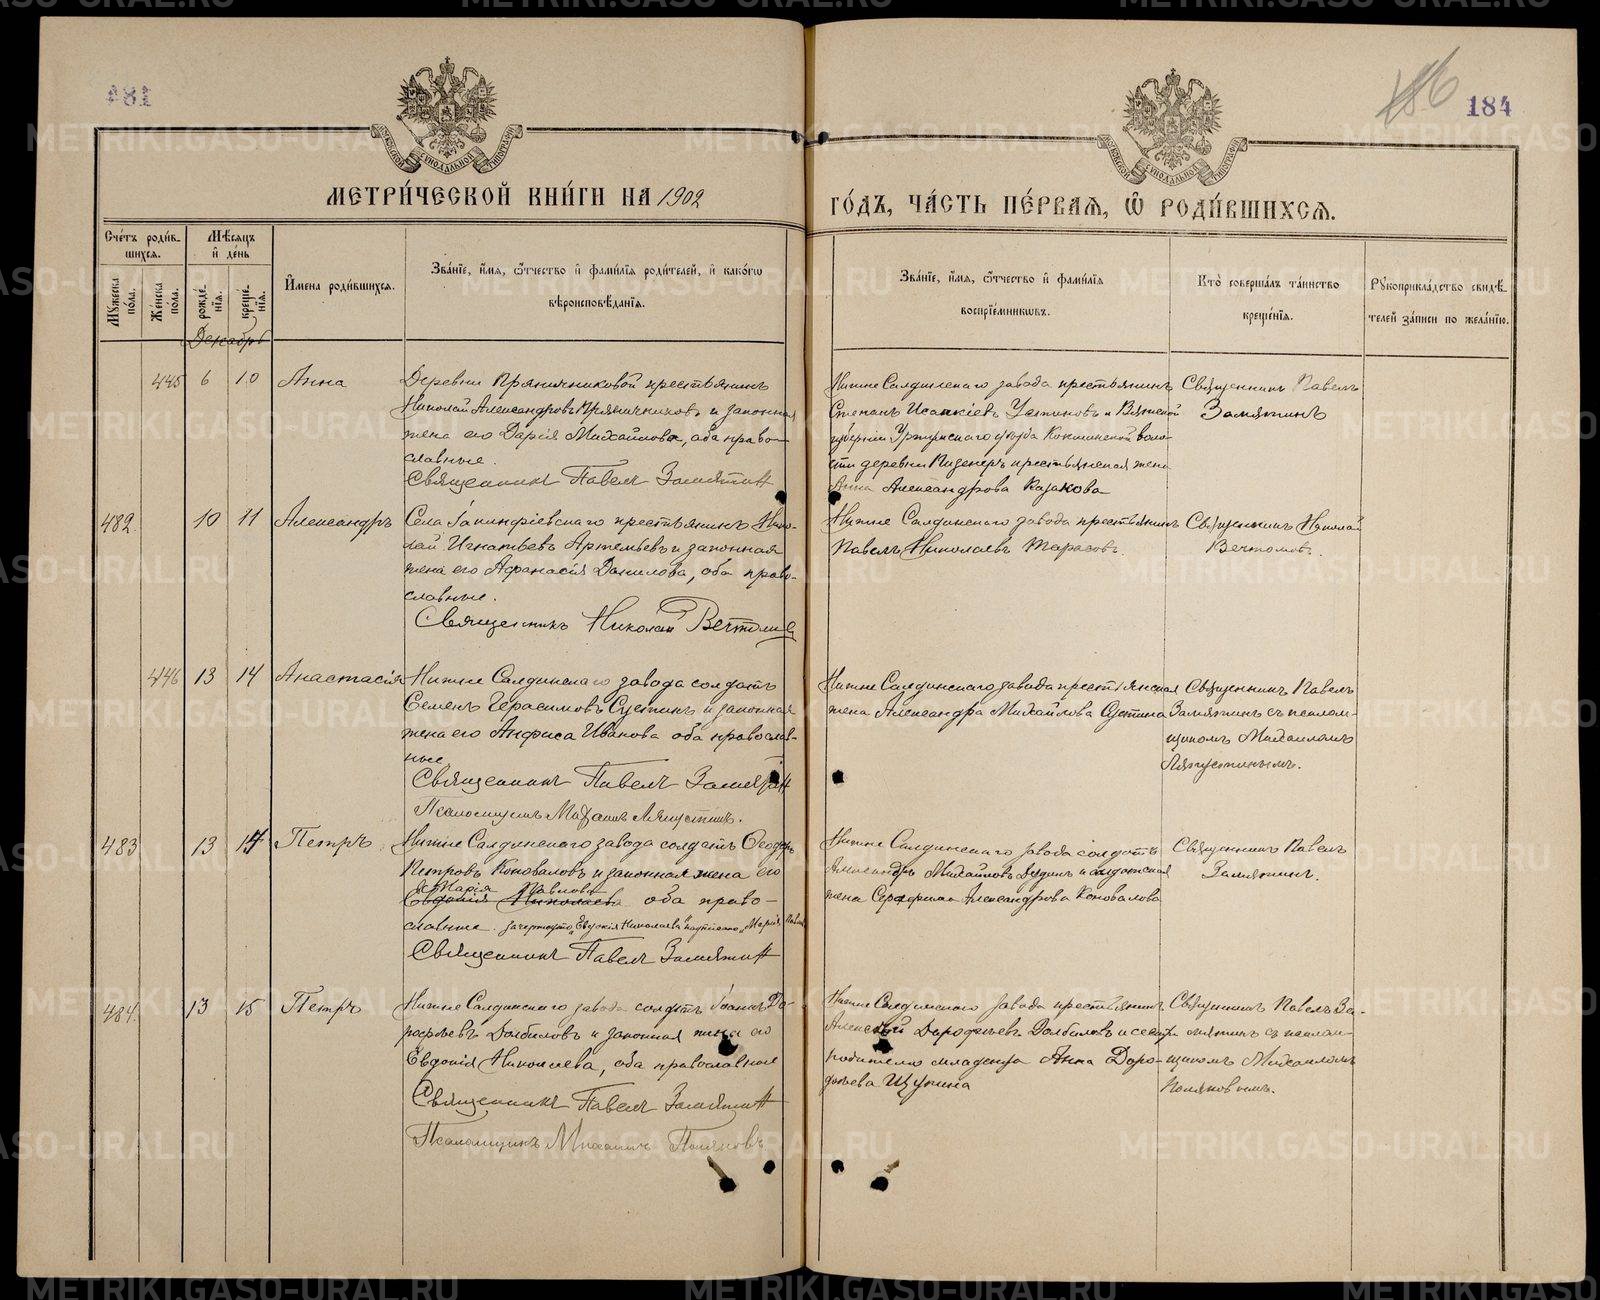 481
186
184
МОСКОВСКОЙ СѴНОДАЛЬНОЙ ТИПОГРАФІИ
МОСКОВСКОЙ СѴНОДАЛЬНОЙ ТИПОГРАФІИ
МЕТРИ́ЧЕСКОЙ КНИ́ГИ НА 1902
ГО́ДЪ, ЧА́СТЬ ПЕ́РВАѦ, Ѡ҆ РОДИ́ВШИХСѦ.
Сче́тъ роди́в-
шихсѧ.
Мѣ́сѧцъ
и҆ де́нь
Мꙋжеска
по́ла.
Же́нска
по́ла.
рожде́-
нїѧ.
креще́-
нїѧ.
И҆мена роди́вшихсѧ.
Зва́нїе, и҆́мѧ, ѻ҆́тчество и҆ фами́лїѧ роди́телей, и҆ како́гѡ
вѣроисповѣ́данїѧ.
Зва́нїе, и҆́мѧ, ѻ҆́тчество и҆ фами́лїѧ
воспрїе́мникѡвъ.
Кто̀ соверша́лъ та́инство
креще́нїѧ.
Рꙋкоприкла́дство свидѣ́-
телей за́писи по жела́нїю.
Декабрь
445 6 10 Анна
Деревни Пряничниковой крестьянинъ
Николай Александровъ Пряничниковъ и законная
жена его Дарія Михайлова, оба право-
славные.
Священникъ Павелъ Замятин
Нижне Салдинскаго завода крестьянинъ
Степанъ Исаакіевъ Устиновъ и Вятской
губерніи Уржумскаго уѣзда Кокшинской воло-
сти деревни крестьянская жена
Анна Александрова Казакова
Священникъ Павелъ
Замятинъ
482. 10 11 Александръ
Села Іакинфіевскаго крестьянинъ Нико-
лай Игнатьевъ Артемьевъ и законная
жена его Афанасія Данилова, оба право-
славные.
Священникъ Николай Вечтомов
Нижне Салдинскаго завода крестьянинъ
Павелъ Николаевъ Тарасовъ.
Священникъ Николай
Вечтомовъ.
446 13 14 Анастасія
Нижне Салдинскаго завода солдатъ
Семенъ Герасимовъ Сустинъ и законная
жена его Анфиса Иванова оба православ-
ные
Священник Павелъ Замятин
Псаломщикъ Михаилъ Ляпустинъ.
Нижне Салдинскаго завода крестьянская
жена Александра Михайлова Сустина
Священникъ Павелъ
Замятинъ съ псалом-
щикомъ Михаиломъ
Ляпустинымъ.
483 13 14 Петръ
Нижне Салдинскаго завода солдатъ Ѳеодоръ
Петровъ Коноваловъ и законная жена его
Марія Павлова
Евдокія Николаева оба право-
славные. зачеркнуто „Евдокія Николаева" надписано „Марія Павлова"
Священник Павелъ Замятин
Нижне Салдинскаго завода солдатъ
Александръ Михайловъ Дудинъ и солдатская
жена Серафима Александрова Коновалова
Священникъ Павелъ
Замятинъ.
484. 13 15 Петръ
Нижне Салдинскаго завода солдатъ Іоаннъ До-
рофѣевъ Долбиловъ и законная жена его
Евдокія Николаева, оба православные
Священник Павелъ Замятин
Псаломщикъ Михаилъ Поляковъ
Нижне Салдинскаго завода крестьянинъ
Алексѣй Дорофѣевъ Долбиловъ и сестра
родителю младенца Анна Доро-
фѣева Щукина
Священникъ Павелъ За-
мятинъ съ псалом-
щикомъ Михаиломъ
Поляковымъ.
METRIKI.GASO-URAL.RU